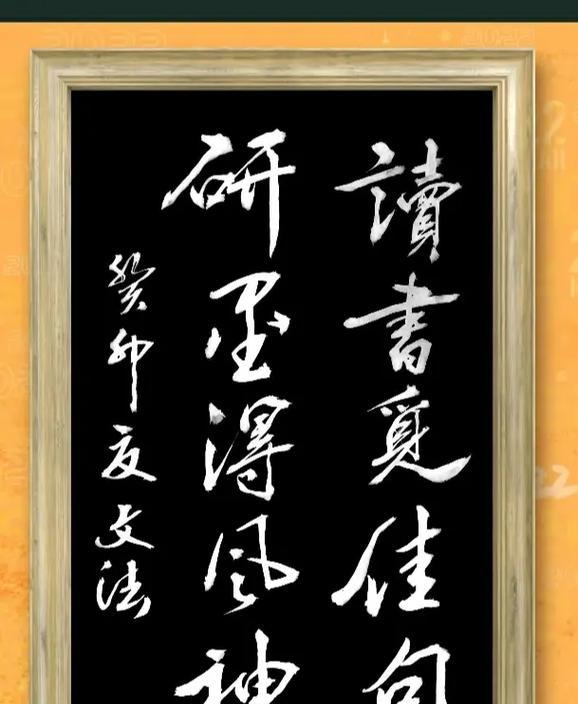 讀書覓佳句
研墨得風神
癸卯友文法